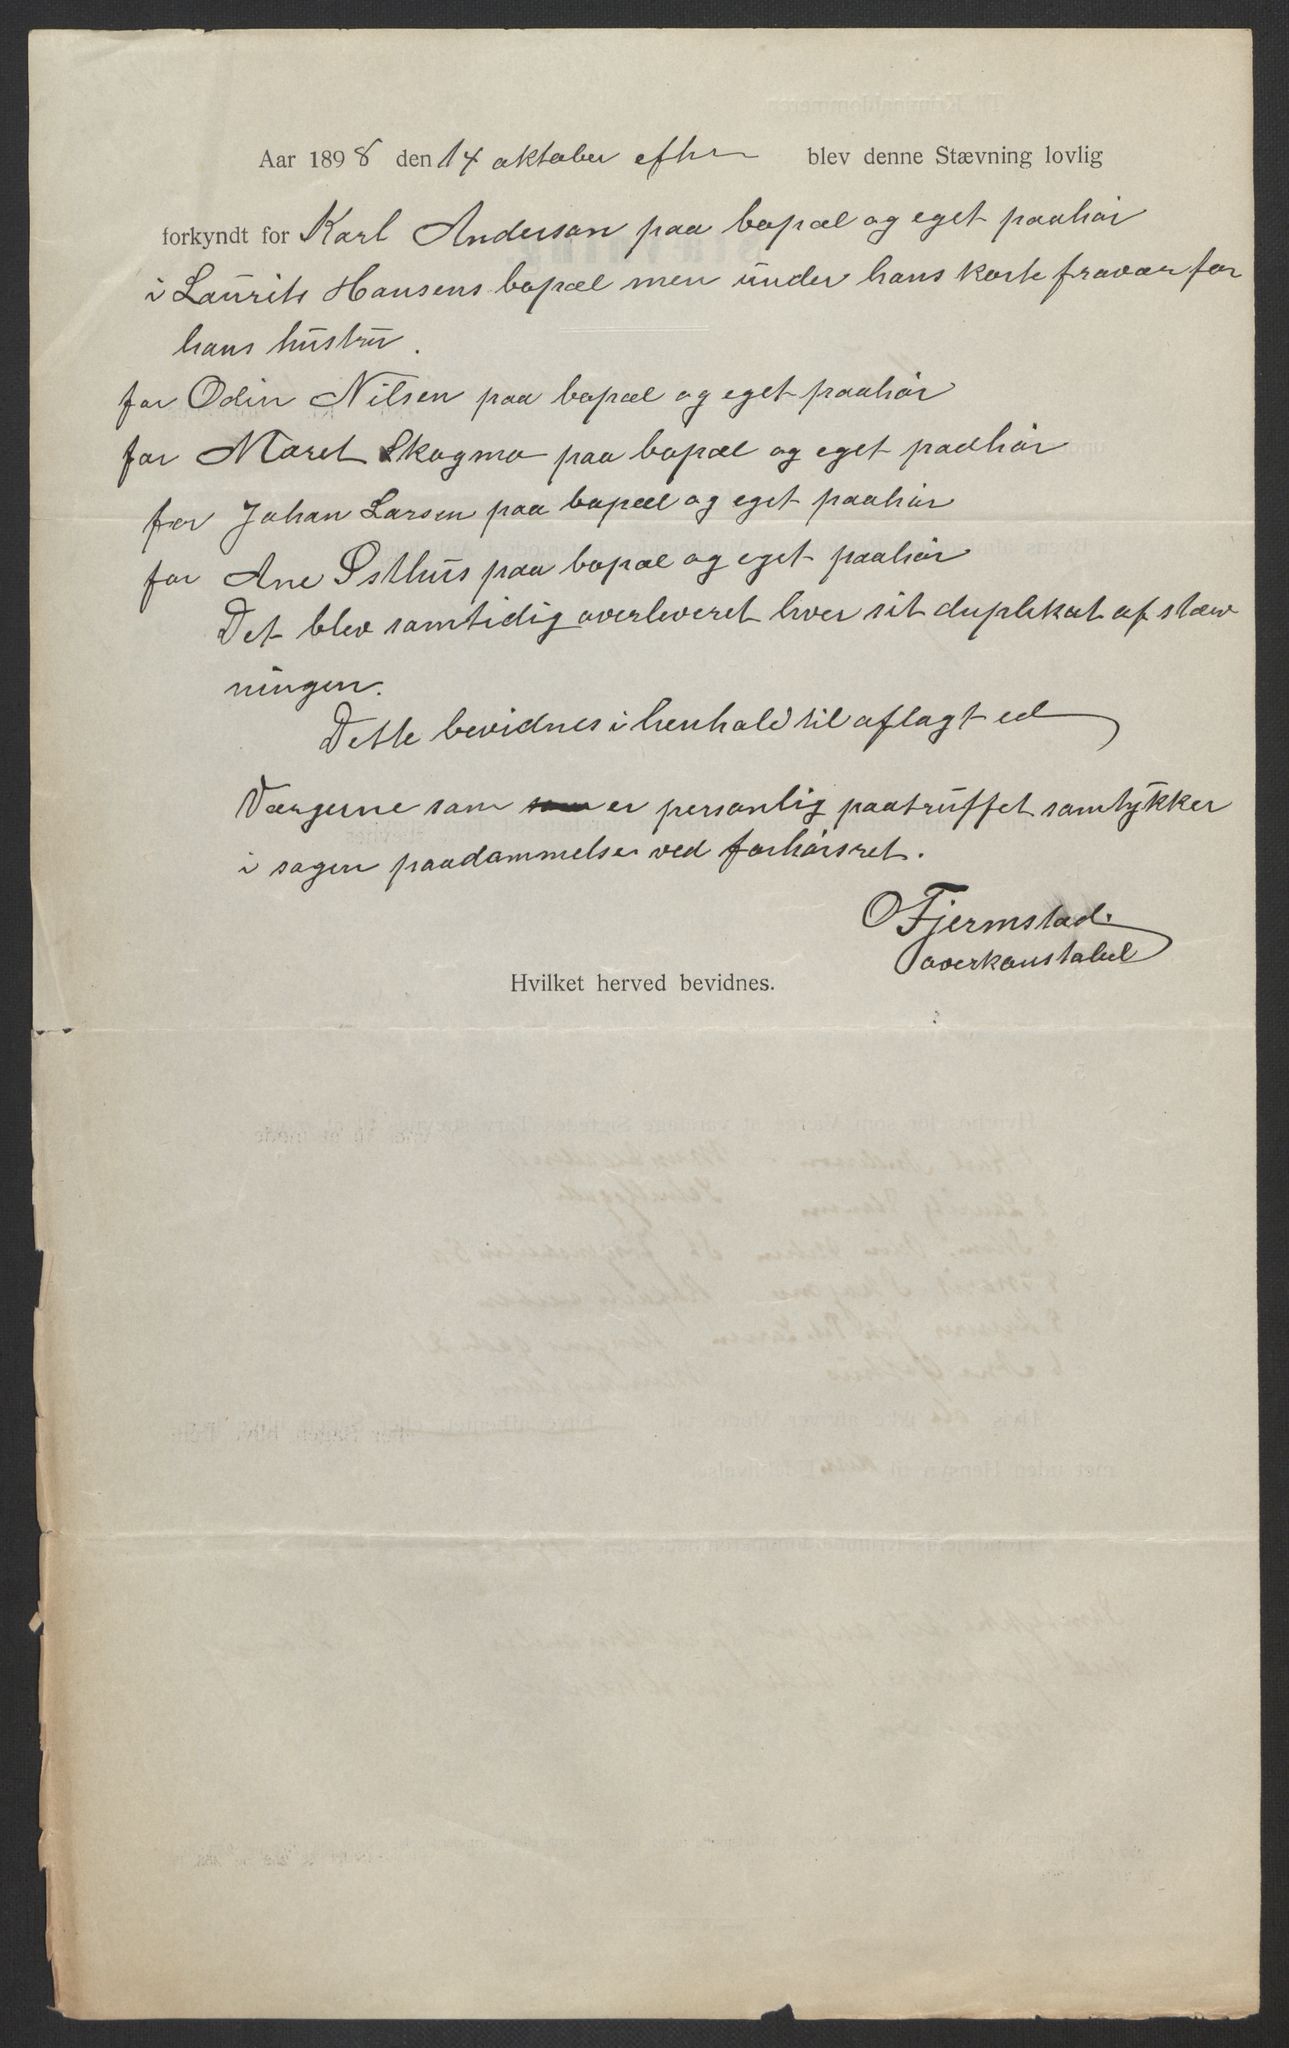 Aar 1898 den 14 oktober efthr blev denne Stævning lovlig
forkyndt for Karl Anderson paa bopæl og eget paahør
i Laurits Hansens bopæl men under hans korte fravær for
hans hustru.
for Odin Nilsen paa bopæl og eget paahør
for Maret Skogmo paa bopæl og eget paahør
for Johan Larsen paa bopæl og eget paahør
for Ane Østhus paa bopæl og eget paahør
Det blev samtidig overleveret hver sit duplikat af stæv
ningen.
Dette bevidnes i henhold til aflagt ed
Værgerne som som er personlig paatruffet samtykker
i sagen paadømmelse ved forhørsret.
O Fjermstad.
overkonstabel
Hvilket herved bevidnes.